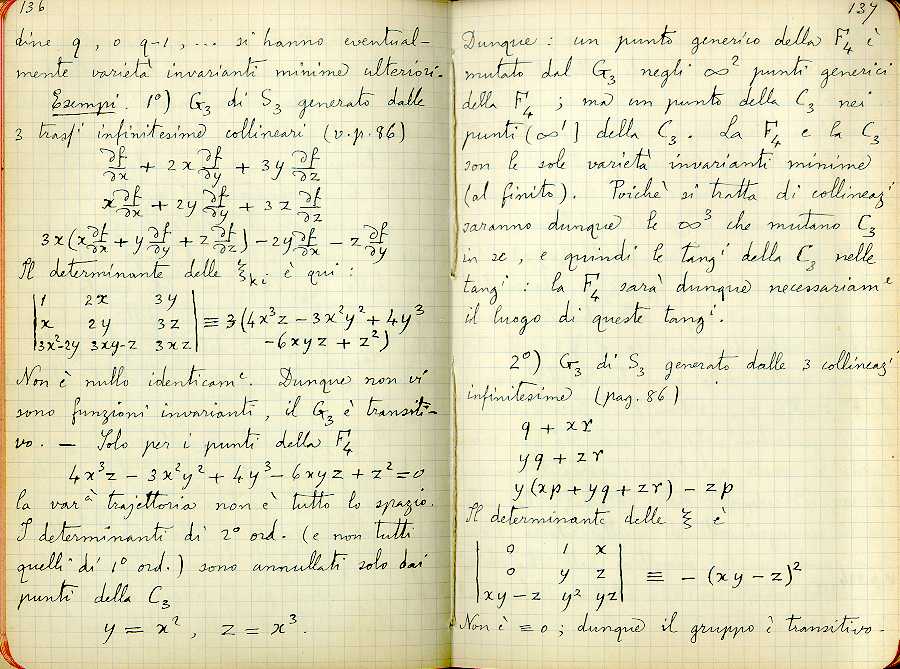 136
dine q, o q-1, ... si hanno eventual-
mente varietà invarianti minime ulteriori.
Esempi. 1°) G₃ di S₃ generato dalle
3 trasfⁱ infinitesime collineari (v. p. 86)
∂f/∂x + 2x ∂f/∂y + 3y ∂f/∂z
x ∂f/∂x + 2y ∂f/∂y + 3z ∂f/∂z
3x(x ∂f/∂x + y ∂f/∂y + z ∂f/∂z) - 2y ∂f/∂x - z ∂f/∂y
Il determinante delle ξₖᵢ è qui:
| 1 2x 3y |
| x 2y 3z | ≡ 3(4x³z - 3x²y² + 4y³
| 3x²-2y 3xy-z 3xz | -6xyz + z²)
Non è nullo identicamᵉ. Dunque non vi
sono funzioni invarianti, il G₃ è transiti-
vo. — Solo per i punti della F₄
4x³z - 3x²y² + 4y³ - 6xyz + z² = 0
la varᵃ trajettoria non è tutto lo spazio.
I determinanti di 2° ord. (e non tutti
quelli di 1° ord.) sono annullati solo dai
punti della C₃
y = x², z = x³.
137
Dunque: un punto generico della F₄ è
mutato dal G₃ negli ∞² punti generici
della F₄; ma un punto della C₃ nei
punti (∞¹) della C₃. La F₄ e la C₃
son le sole varietà invarianti minime
(al finito). Poichè si tratta di collineazⁱ
saranno dunque le ∞³ che mutano C₃
in se, e quindi le tangⁱ della C₃ nelle
tangⁱ: la F₄ sarà dunque necessariamᵉ
il luogo di queste tangⁱ.
2°) G₃ di S₃ generato dalle 3 collineazⁱ
infinitesime (pag. 86)
q + xr
yq + zr
y(xp + yq + zr) - zp
Il determinante delle ξ è
| 0 1 x |
| 0 y z | ≡ - (xy - z)²
| xy-z y² yz |
Non è ≡ 0; dunque il gruppo è transitivo.